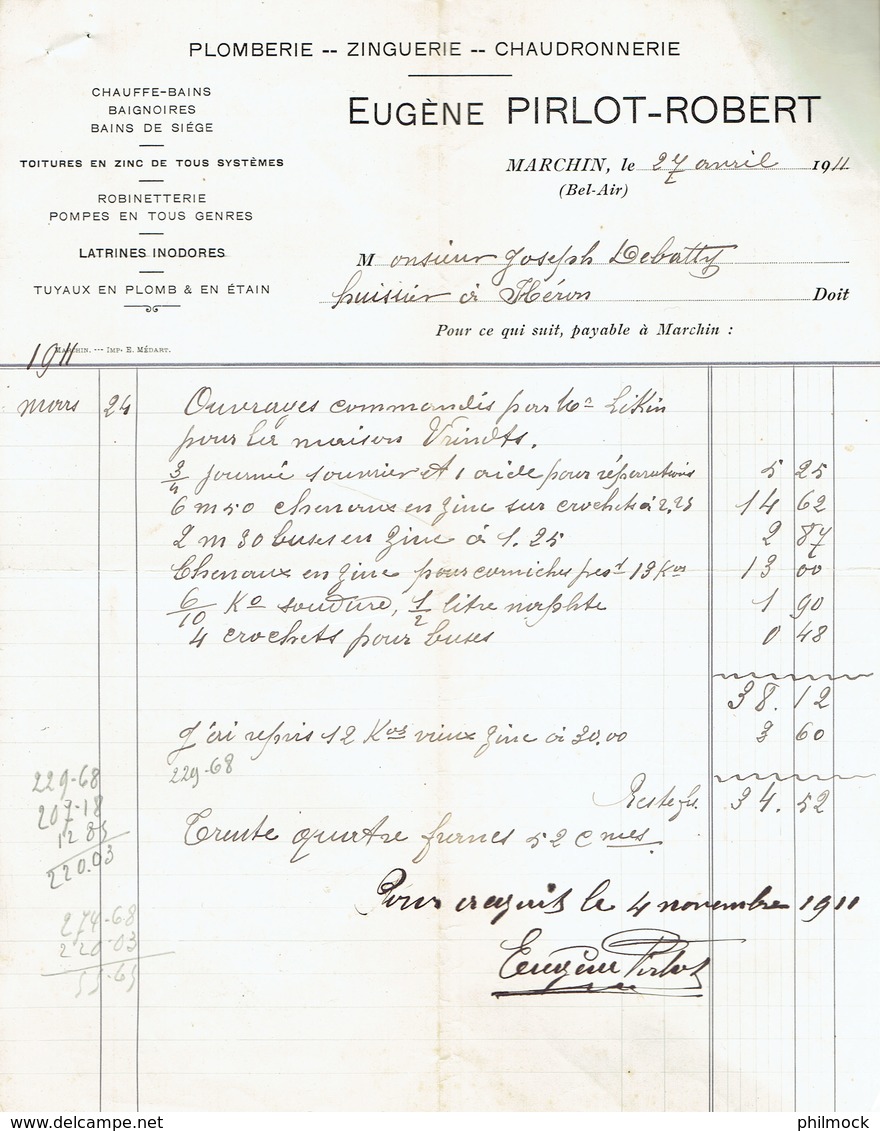 PLOMBERIE -- ZINGUERIE -- CHAUDRONNERIE
CHAUFFE-BAINS
BAIGNOIRES
BAINS DE SIÉGE
TOITURES EN ZINC DE TOUS SYSTÈMES
ROBINETTERIE
POMPES EN TOUS GENRES
LATRINES INODORES
TUYAUX EN PLOMB & EN ÉTAIN
MARCHIN. --- IMP. E. MÉDART.
EUGÈNE PIRLOT-ROBERT
MARCHIN, le 27 avril 1911
(Bel-Air)
Monsieur Joseph Debatty
huissier à Héron Doit
Pour ce qui suit, payable à Marchin :
1911
mars 24 Ouvrages commandés par
pour la maison Vrindts.
3/4 journé d'ouvrier et 1 aide pour réparations 5 25
6 m 50 chenaux en zinc sur crochets à 2,25 14 62
2 m 30 buses en zinc à 1.25 2 87
Chenaux en zinc pour corniches pest 13 Kos 13 00
6/10 Ko soudure, 1/2 litre naphte 1 90
4 crochets pour buses 0 48
38.12
J'ai repris 12 Kos vieux zinc à 30,00 3 60
229-68
Reste fs. 34.52
Trente quatre francs 52 cmes.
Pour acquit le 4 novembre 1911
Eugène Pirlot
229-68
207-18
12 85
220.03
274-68
220-03
55-65
philmock